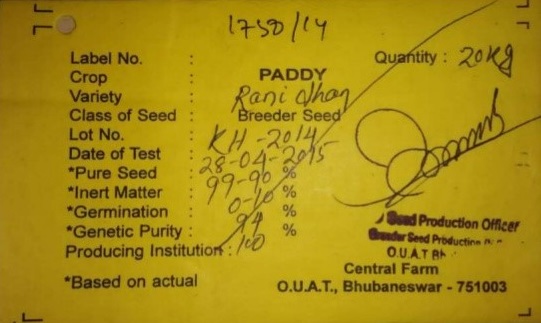 1750/14
Label No. : Quantity : 20Kg
Crop : PADDY
Variety : Rani dhan
Class of Seed : Breeder Seed
Lot No. : KH-2014
Date of Test : 28-04-2015
*Pure Seed : 99-90 %
*Inert Matter : 0-10 %
*Germination : 94 %
*Genetic Purity : 100 %
Producing Institution :
Seed Production Officer
Breeder Seed Production
O.U.A.T
Central Farm
*Based on actual O.U.A.T., Bhubaneswar - 751003